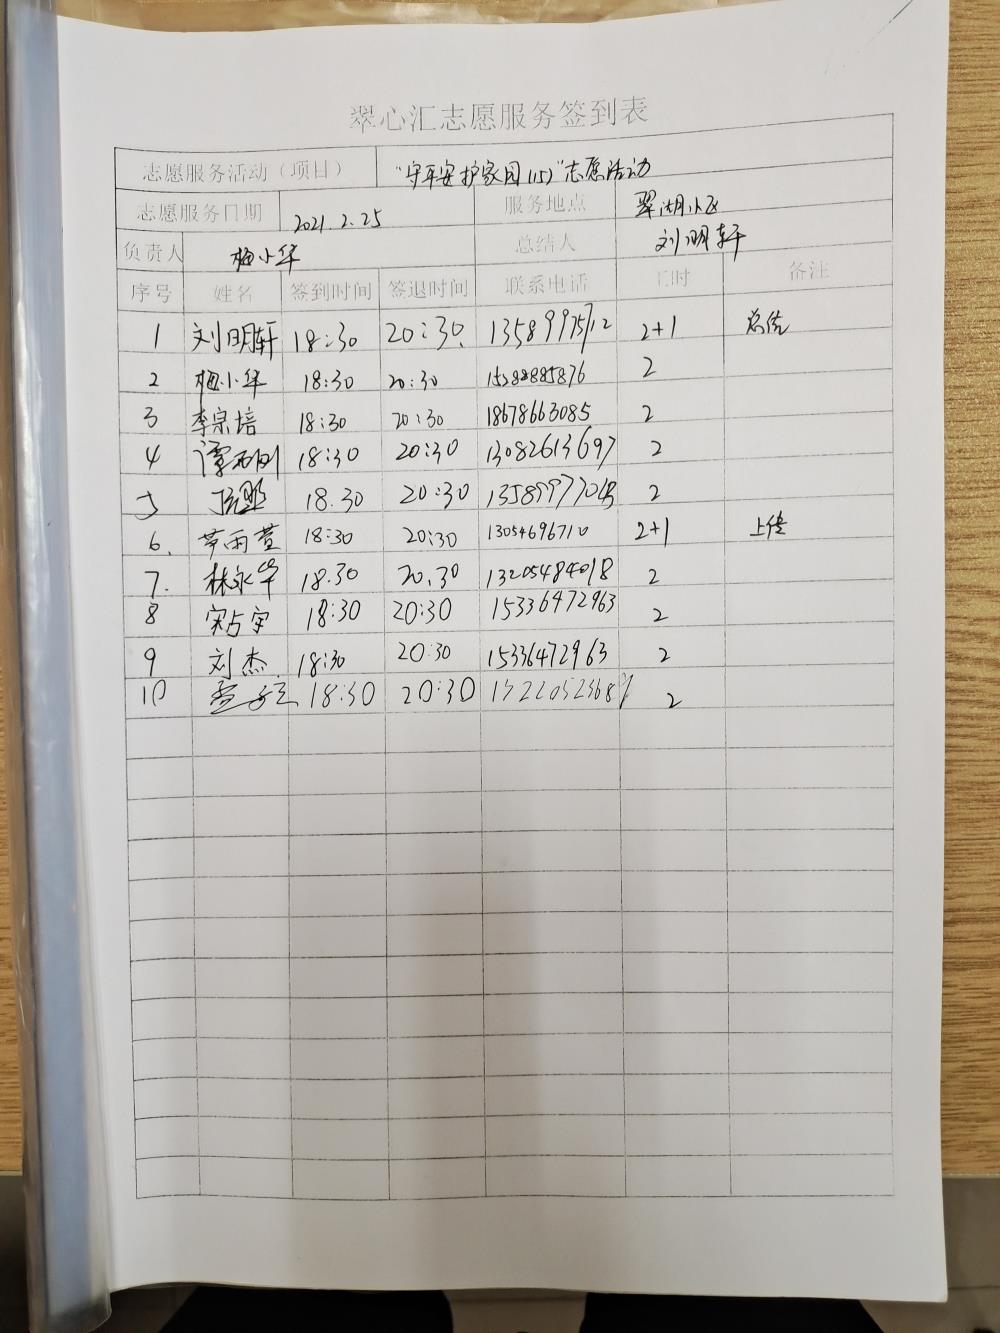 翠心汇志愿服务签到表
志愿服务活动（项目） "守平安护家园（15）"志愿活动
志愿服务日期 2021.2.25 服务地点 翠湖小区
负责人 梅小华 总结人 刘明轩
序号 姓名 签到时间 签退时间 联系电话 工时 备注
1 刘明轩 18:30 20:30 13589975712 2+1 总结
2 梅小华 18:30 20:30 2
3 李宗培 18:30 20:30 18678663085 2
4 谭 18:30 20:30 13082613697 2
5 18.30 20:30 2
6. 雨萱 18:30 20:30 13054696710 2+1 上传
7. 林永华 18.30 20.30 13205484018 2
8 宋占宇 18:30 20:30 15336472963 2
9 刘杰. 18:30 20:30 15336472963 2
10 18:30 20:30 2